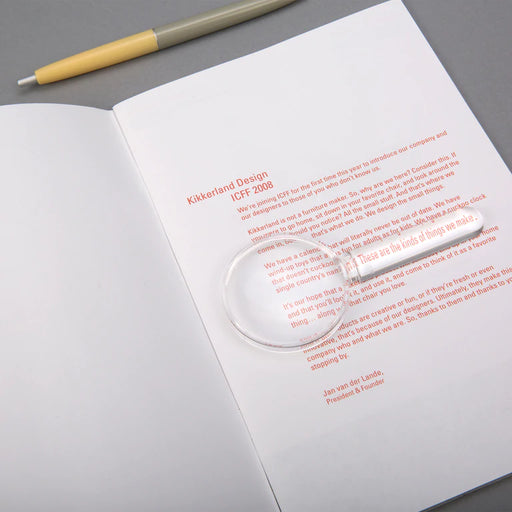 Kikkerland Design
ICFF 2008
We're joining ICFF for the first time this year to introduce our company and
our designers to those of you who don't know us.
Kikkerland is not a furniture maker. So, why are we here? Consider this. If
you were to go home, sit down in your favorite chair, and look around the
would you notice? All the small stuff. And that's where we
come in, that's what we do. We design the small things.
We have a calendar that will literally never be out of date. We have
wind-up toys that fun for adults as for kids. We have a cuckoo clock
that doesn't cuckoo
single country's
These are the kinds of things we make.
It's our hope that it, and use it, and come to think of it as a favorite
and that you'll
thing... along that chair you love.
products are creative or fun, or if they're fresh or even
innovative, that's because of our designers. Ultimately, they make this
company who and what we are. So, thanks to them and thanks to you
stopping by.
Jan van der Lande,
President & Founder